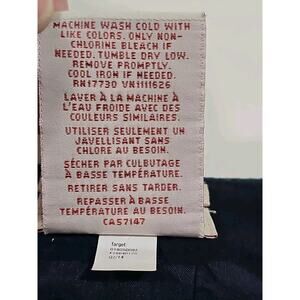 MACHINE WASH COLD WITH
LIKE COLORS. ONLY NON-
CHLORINE BLEACH IF
NEEDED. TUMBLE DRY LOW.
REMOVE PROMPTLY.
COOL IRON IF NEEDED.
RN17730 VN1111626
LAVER À LA MACHINE À
L'EAU FROIDE AVEC DES
COULEURS SIMILAIRES.
UTILISER SEULEMENT UN
JAVELLISANT SANS
CHLORE AU BESOIN.
SÉCHER PAR CULBUTAGE
À BASSE TEMPÉRATURE.
RETIRER SANS TARDER.
REPASSER À BASSE
TEMPÉRATURE AU BESOIN.
CA57147
Target